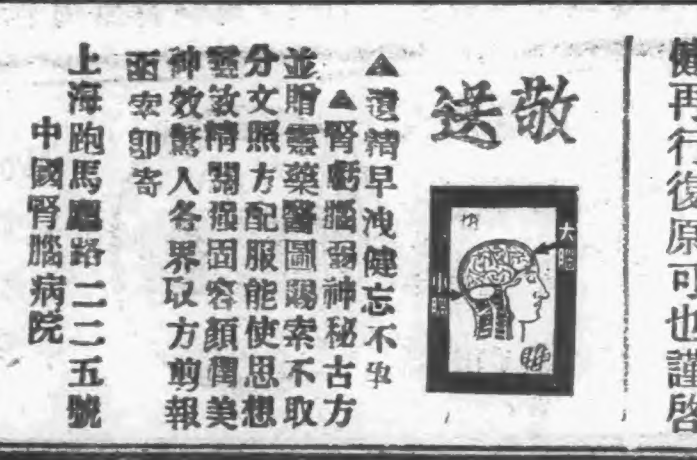 健再行復原可也謹啓
敬送
大腦
小腦
▲遺精早洩健忘不孕
▲腎虧腦弱神秘古方
並贈靈藥醫圖賜索不取
分文照方配服能使思想
靈敏精關强固容顏潤美
神效驚人各界取方剪報
函索卽寄
上海跑馬廳路二二五號
中國腎腦病院